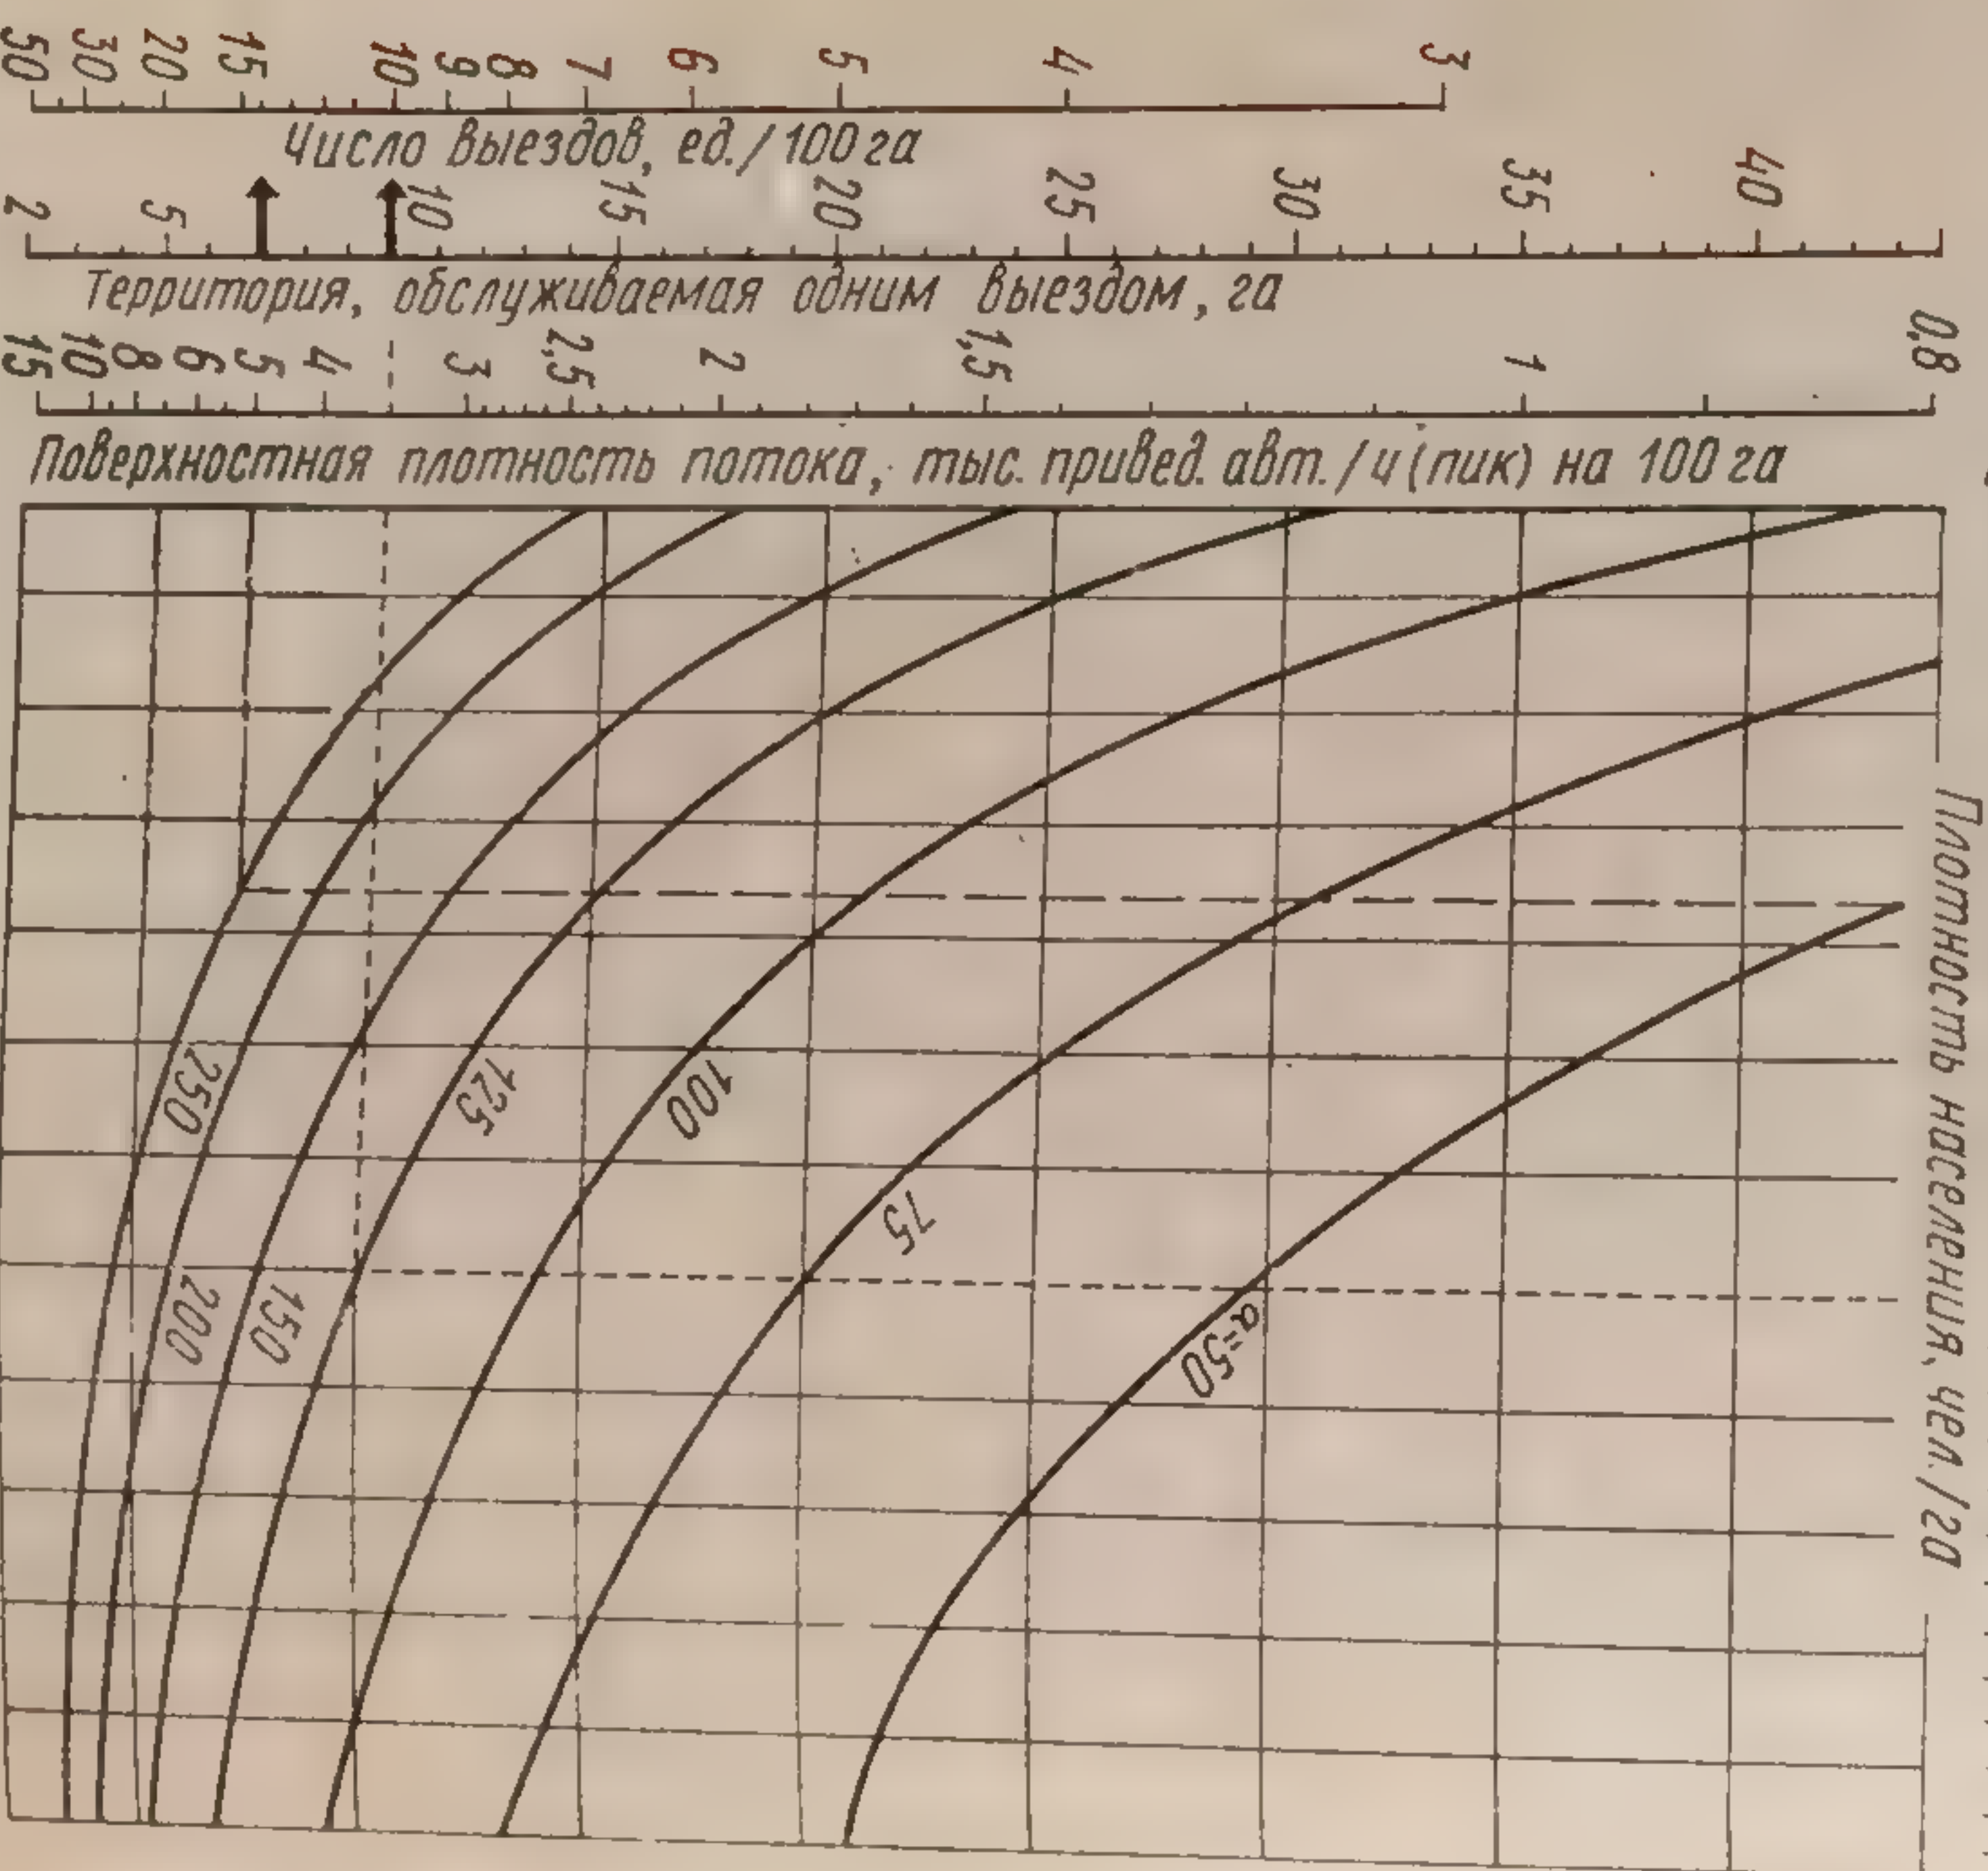 50 30 20 15 10 9 8 7 6 5 4 3
Число выездов, ед./100 га
2 5 10 15 20 25 30 35 40
Территория, обслуживаемая одним выездом, га
15 10 8 6 5 4 3 2,5 2 1,5 1 0,8
Поверхностная плотность потока, тыс. привед. авт./ч (пик) на 100 га
250
200
150
125
100
75
a=50
Плотность населения, чел./га